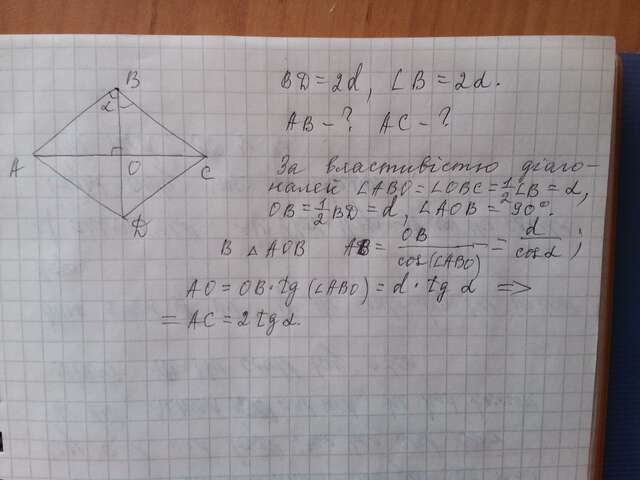 B
α
A
O
C
D
BD = 2d, ∠B = 2α.
AB - ? AC - ?
За властивістю діаго-
налей ∠ABO = ∠OBC = 1/2 ∠B = α,
OB = 1/2 BD = d, ∠AOB = 90°.
В △AOB AB = OB/cos(∠ABO) = d/cos α;
AO = OB · tg (∠ABO) = d · tg α =>
= AC = 2 tg α.